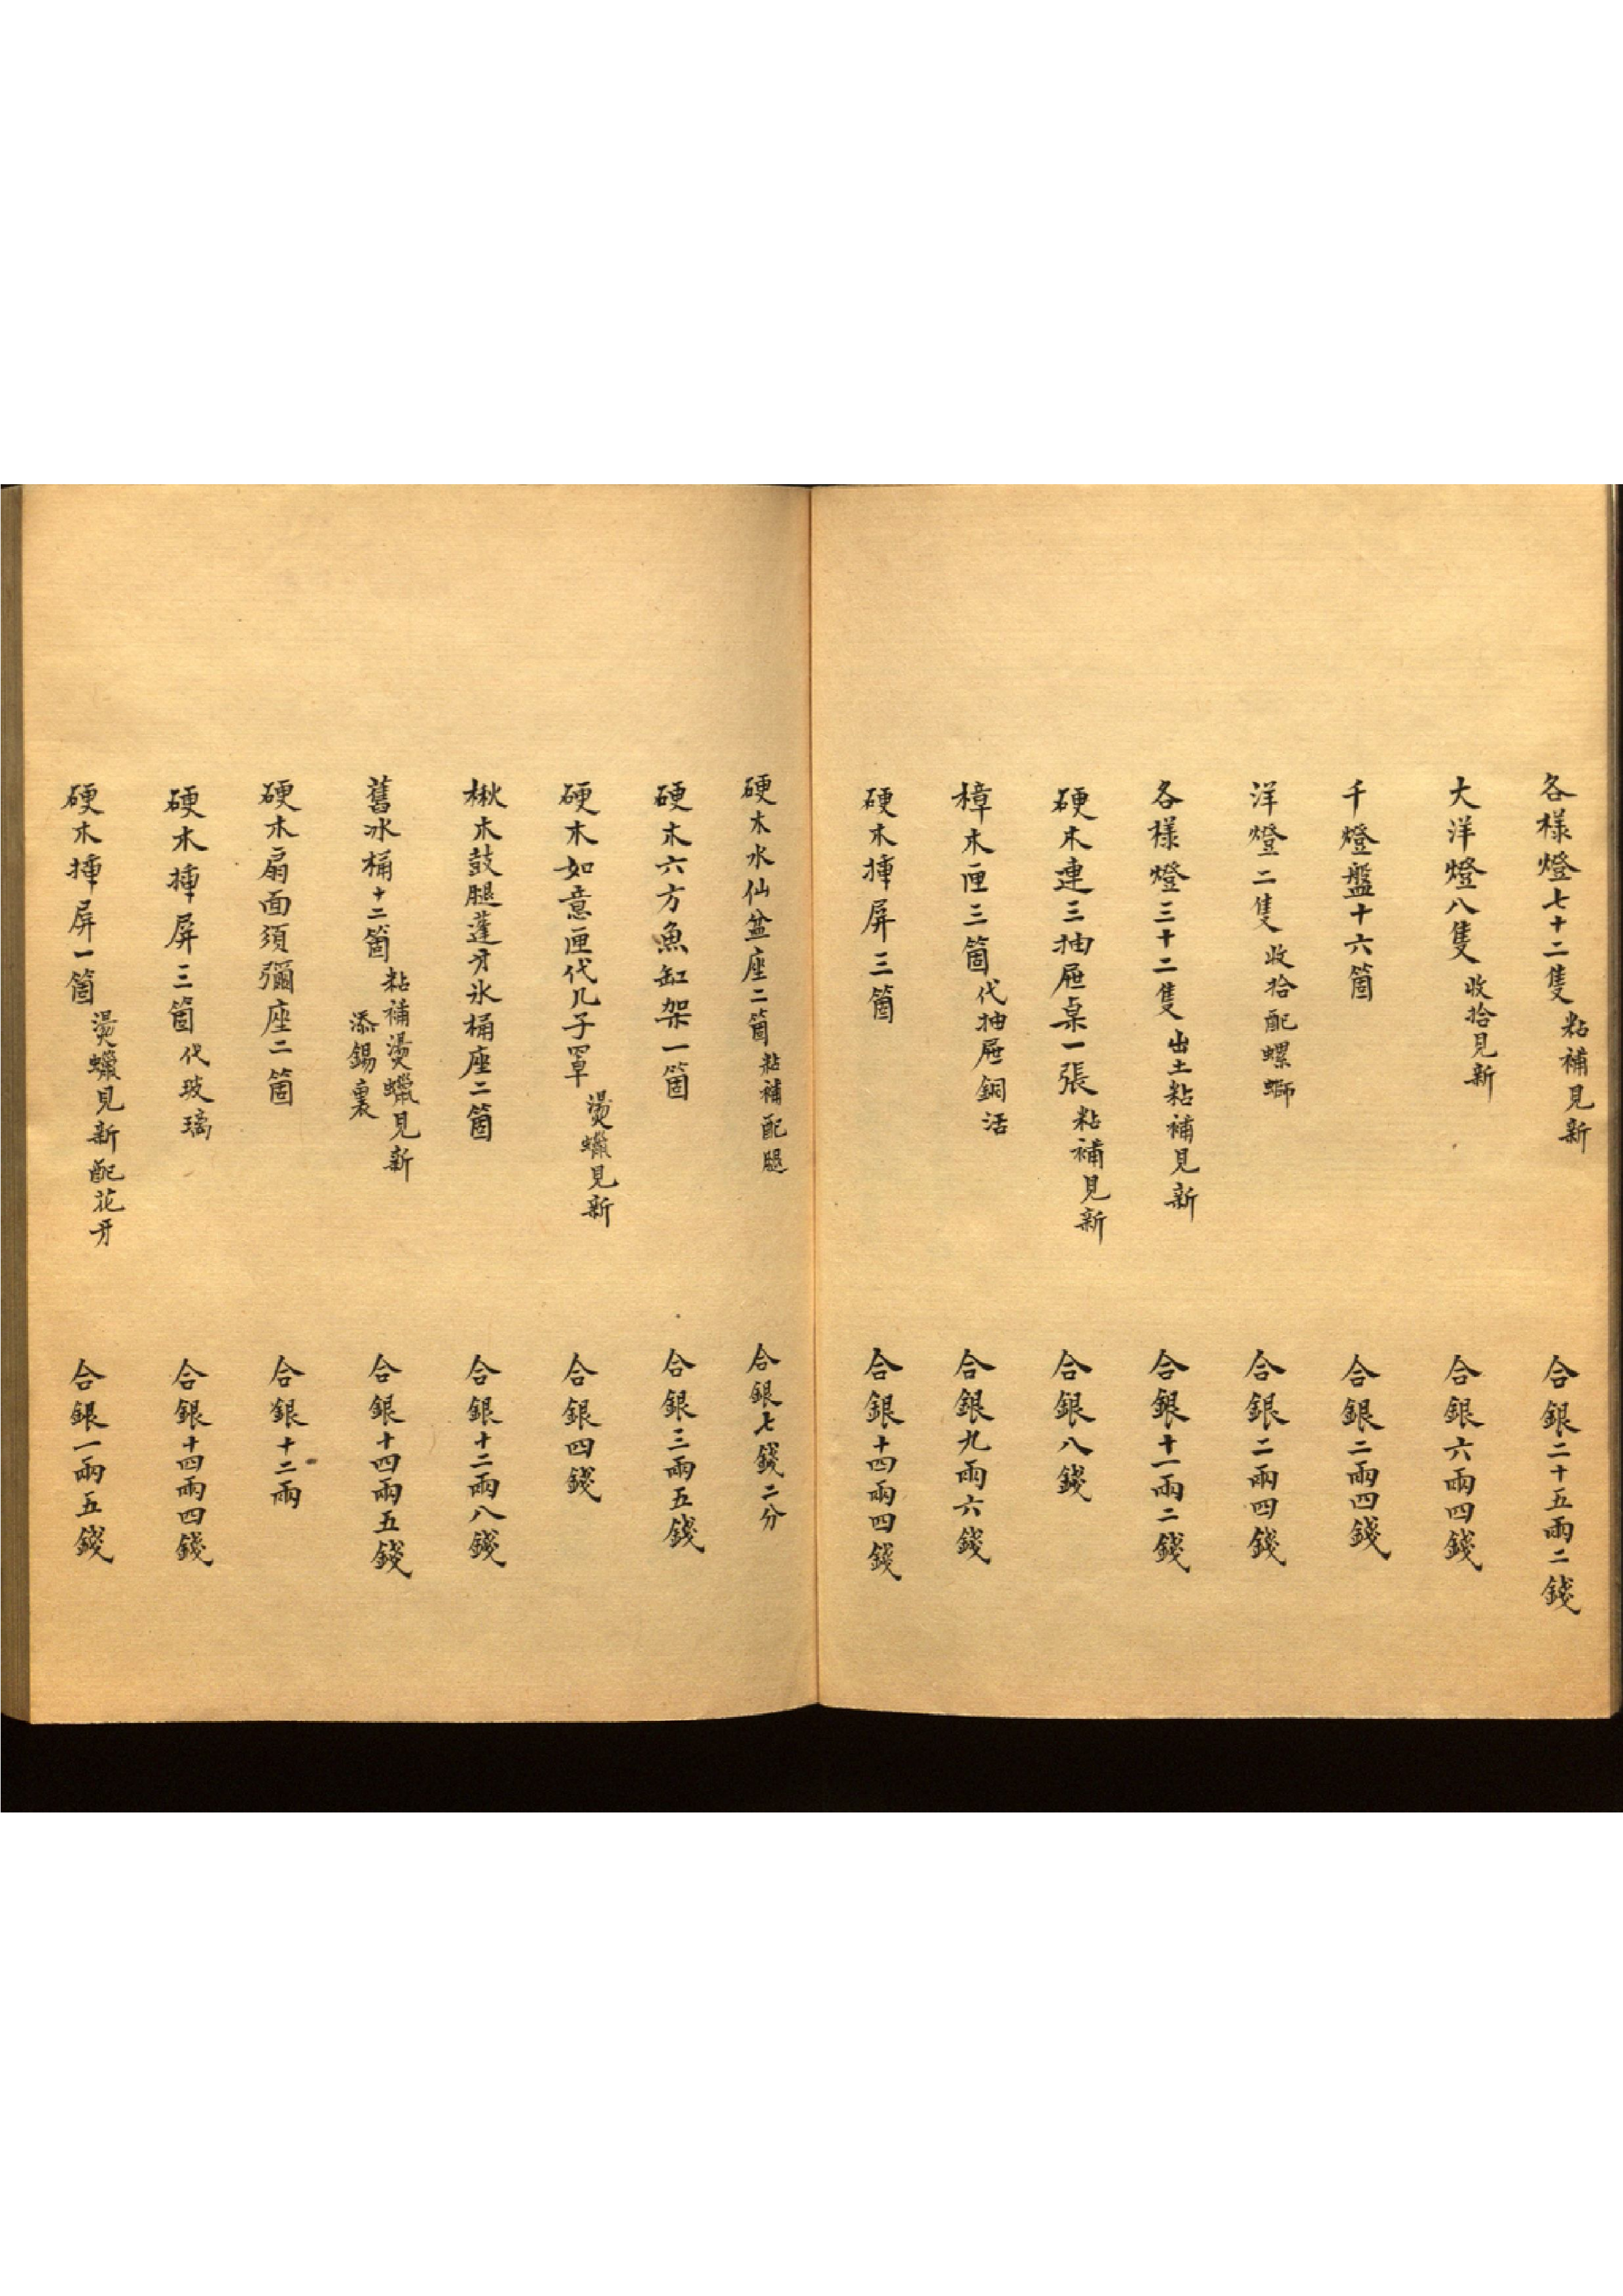 各樣燈七十二隻粘補見新 合銀二十五兩二錢
大洋燈八隻收拾見新 合銀六兩四錢
千燈盤十六箇 合銀二兩四錢
洋燈二隻收拾配螺螄 合銀二兩四錢
各樣燈三十二隻出土粘補見新 合銀十一兩二錢
硬木連三抽屜桌一張粘補見新 合銀八錢
樟木匣三箇代抽屜銅活 合銀九兩六錢
硬木揷屏三箇 合銀十四兩四錢
硬木水仙盆座二箇粘補配腿 合銀七錢二分
硬木六方魚缸架一箇 合銀三兩五錢
硬木如意匣代几子罩燙蠟見新 合銀四錢
楸木鼓腿蓬牙氷桶座二箇 合銀十二兩八錢
舊冰桶十二箇粘補燙蠟見新添錫裏 合銀十四兩五錢
硬木扇面須彌座二箇 合銀十二兩
硬木揷屏三箇代玻璃 合銀十四兩四錢
硬木揷屏一箇燙蠟見新配花牙 合銀一兩五錢